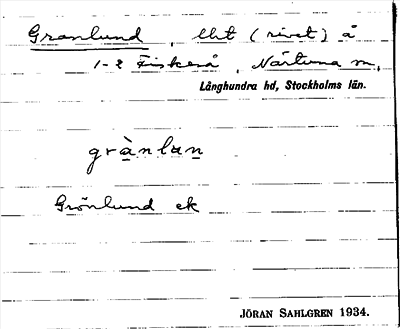 Granlund, lht (rivet) å
1-2 Fiskeså, Närtuna sn,
Långhundra hd, Stockholms län.
grànlun
Grönlund ek
JÖRAN SAHLGREN 1934.